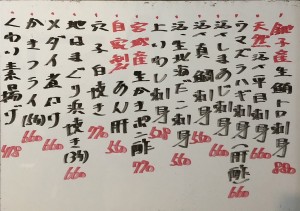 銚子産生鯖トロ刺身 880
天然活〆平目刺身 660
ウマズラハギ刺身(肝) 660
活〆しまあじ刺身
活〆真鯛刺身
活・生地だこ刺身 560
上いわし刺身 508
宮城産生かきポン酢 770
自家製あん肝 660
穴子白焼き 770
地はまぐり浜焼き(3ケ) 660
メダイ煮付 660
かきフライ(3ケ) 660
くわい素揚げ 478